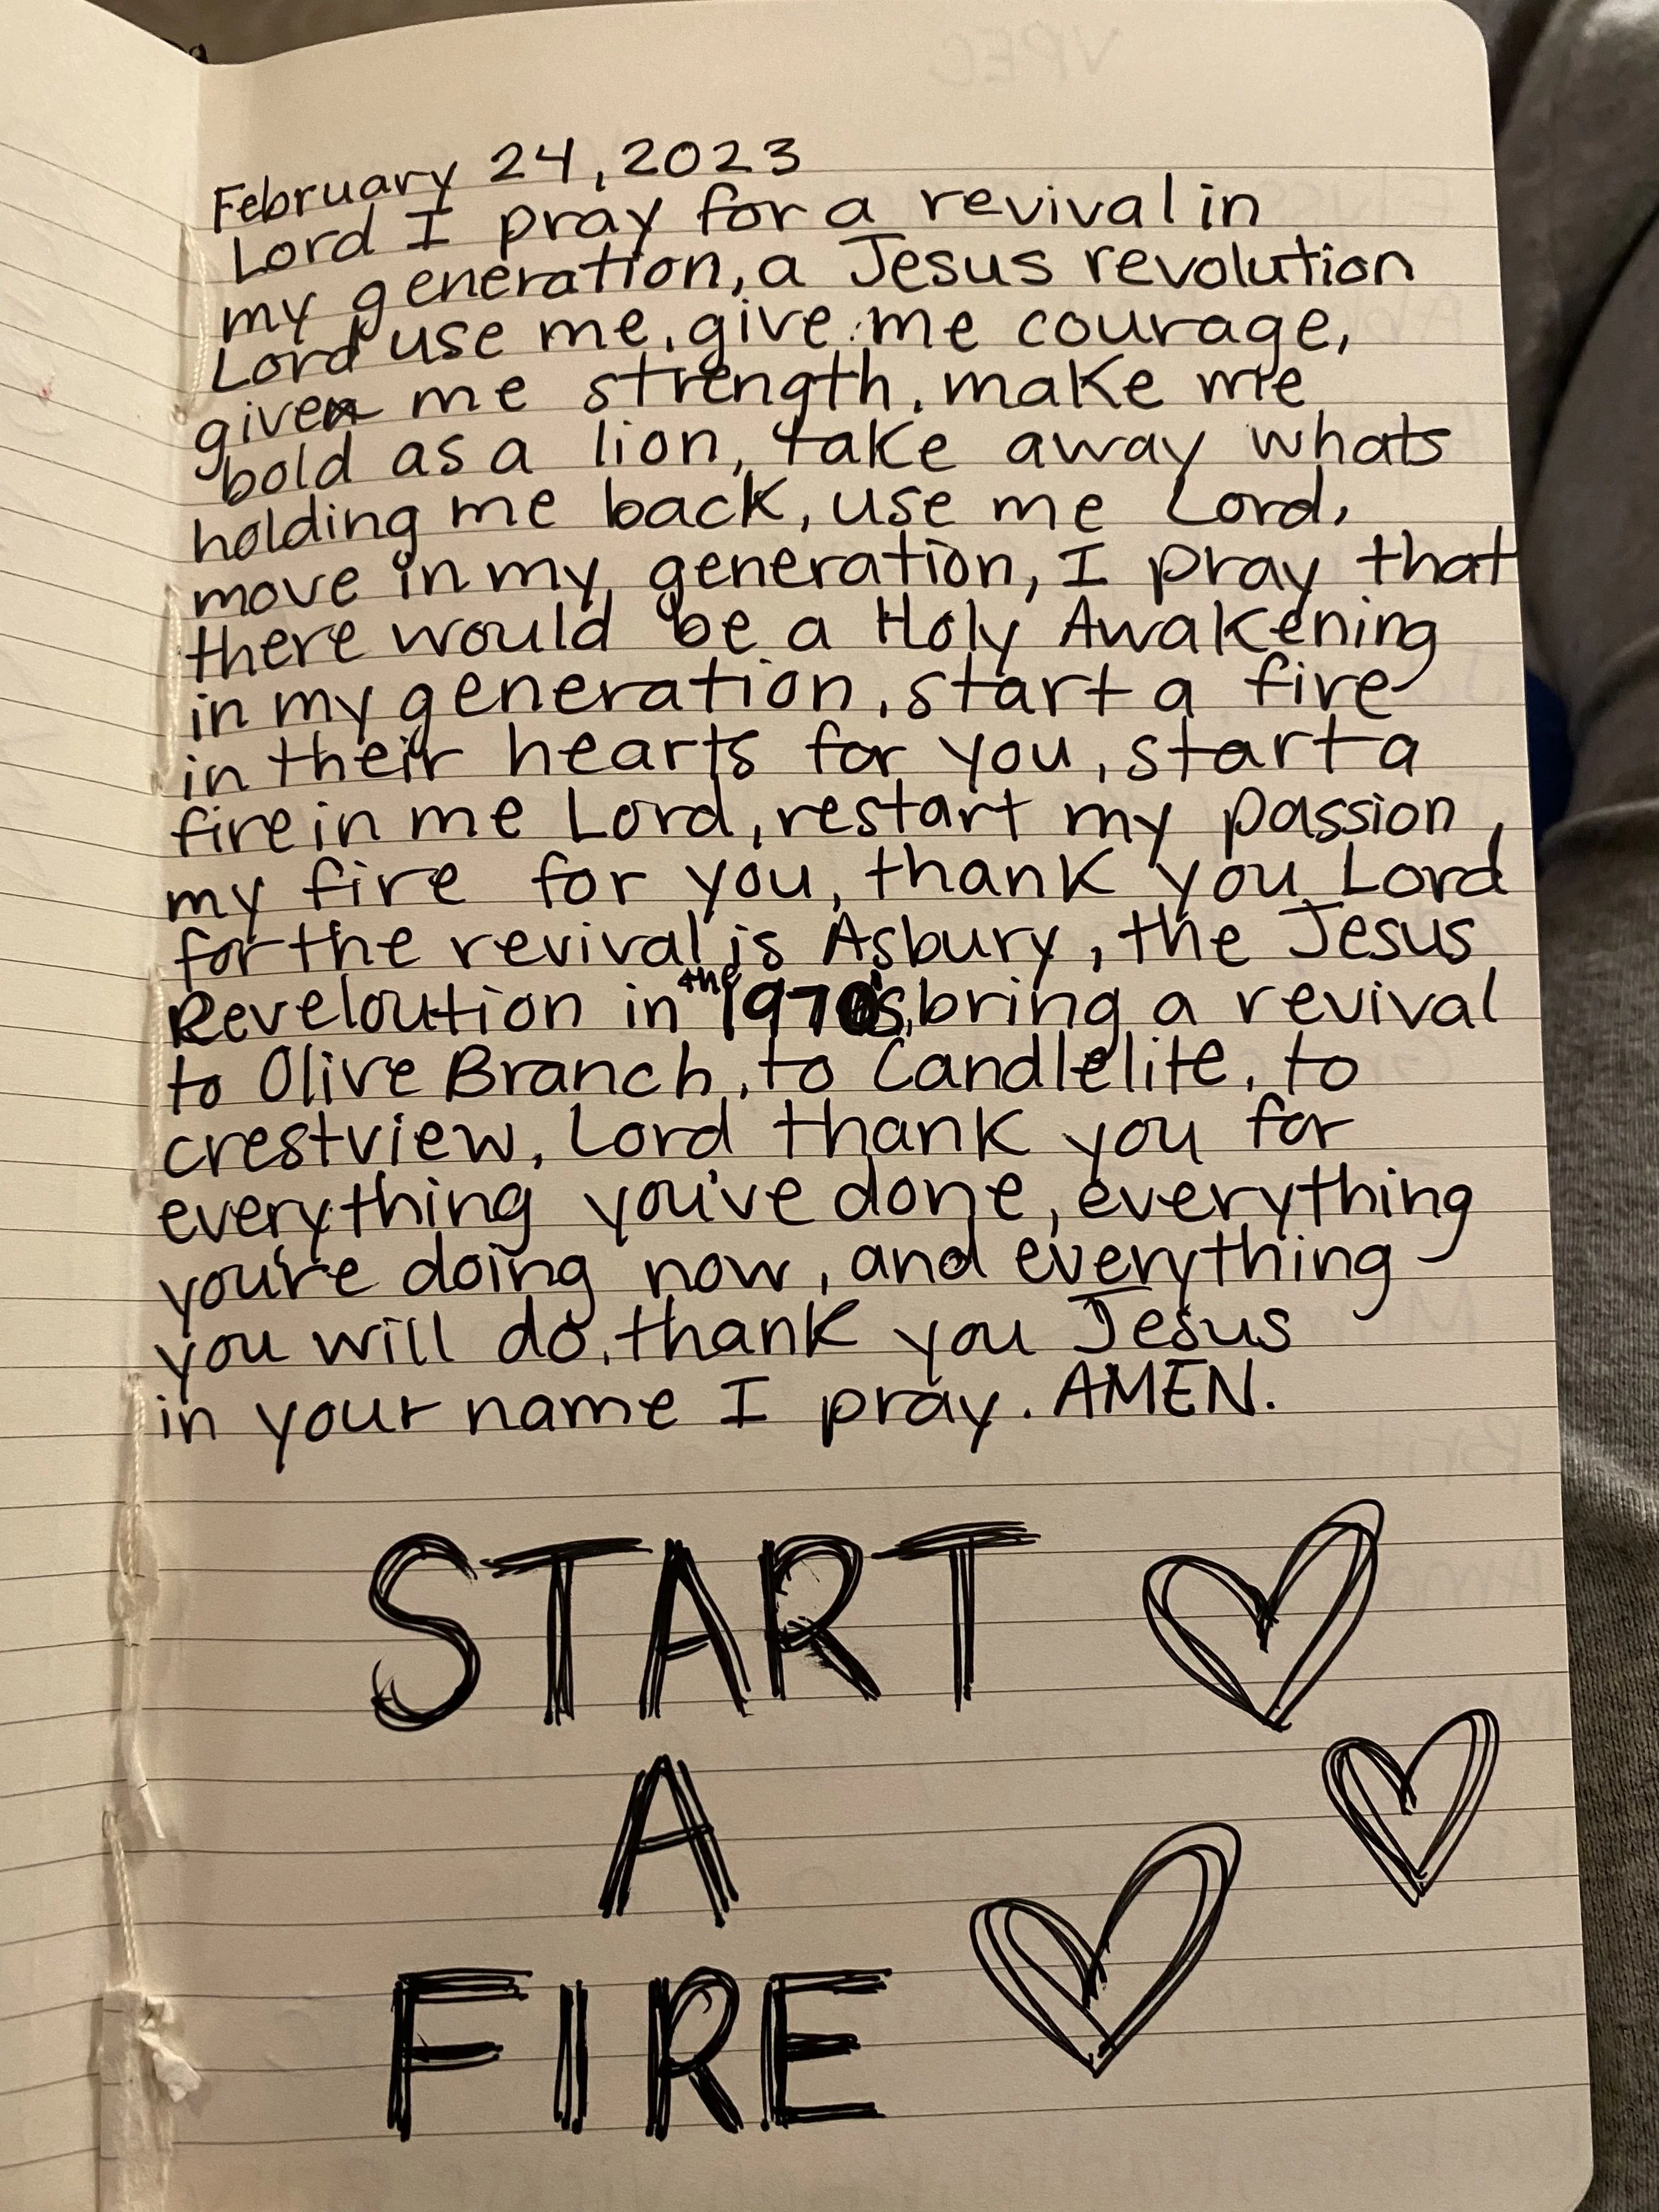 February 24, 2023
Lord I pray for a revival in
my generation, a Jesus revolution
Lord use me, give me courage,
given me strength, make me
bold as a lion, take away whats
holding me back, use me Lord,
move in my generation, I pray that
there would be a Holy Awakening
in my generation, start a fire
in their hearts for you, start a
fire in me Lord, restart my passion,
my fire for you, thank you Lord
for the revival is Asbury, the Jesus
Reveloution in the 1970's, bring a revival
to Olive Branch, to Candlelite, to
crestview, Lord thank you for
everything you've done, everything
you're doing now, and everything
you will do, thank you Jesus
in your name I pray. AMEN.
START
A
FIRE